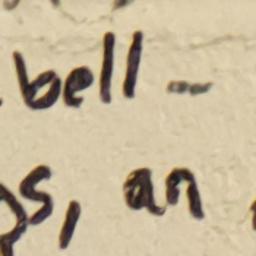 bell-
s, an